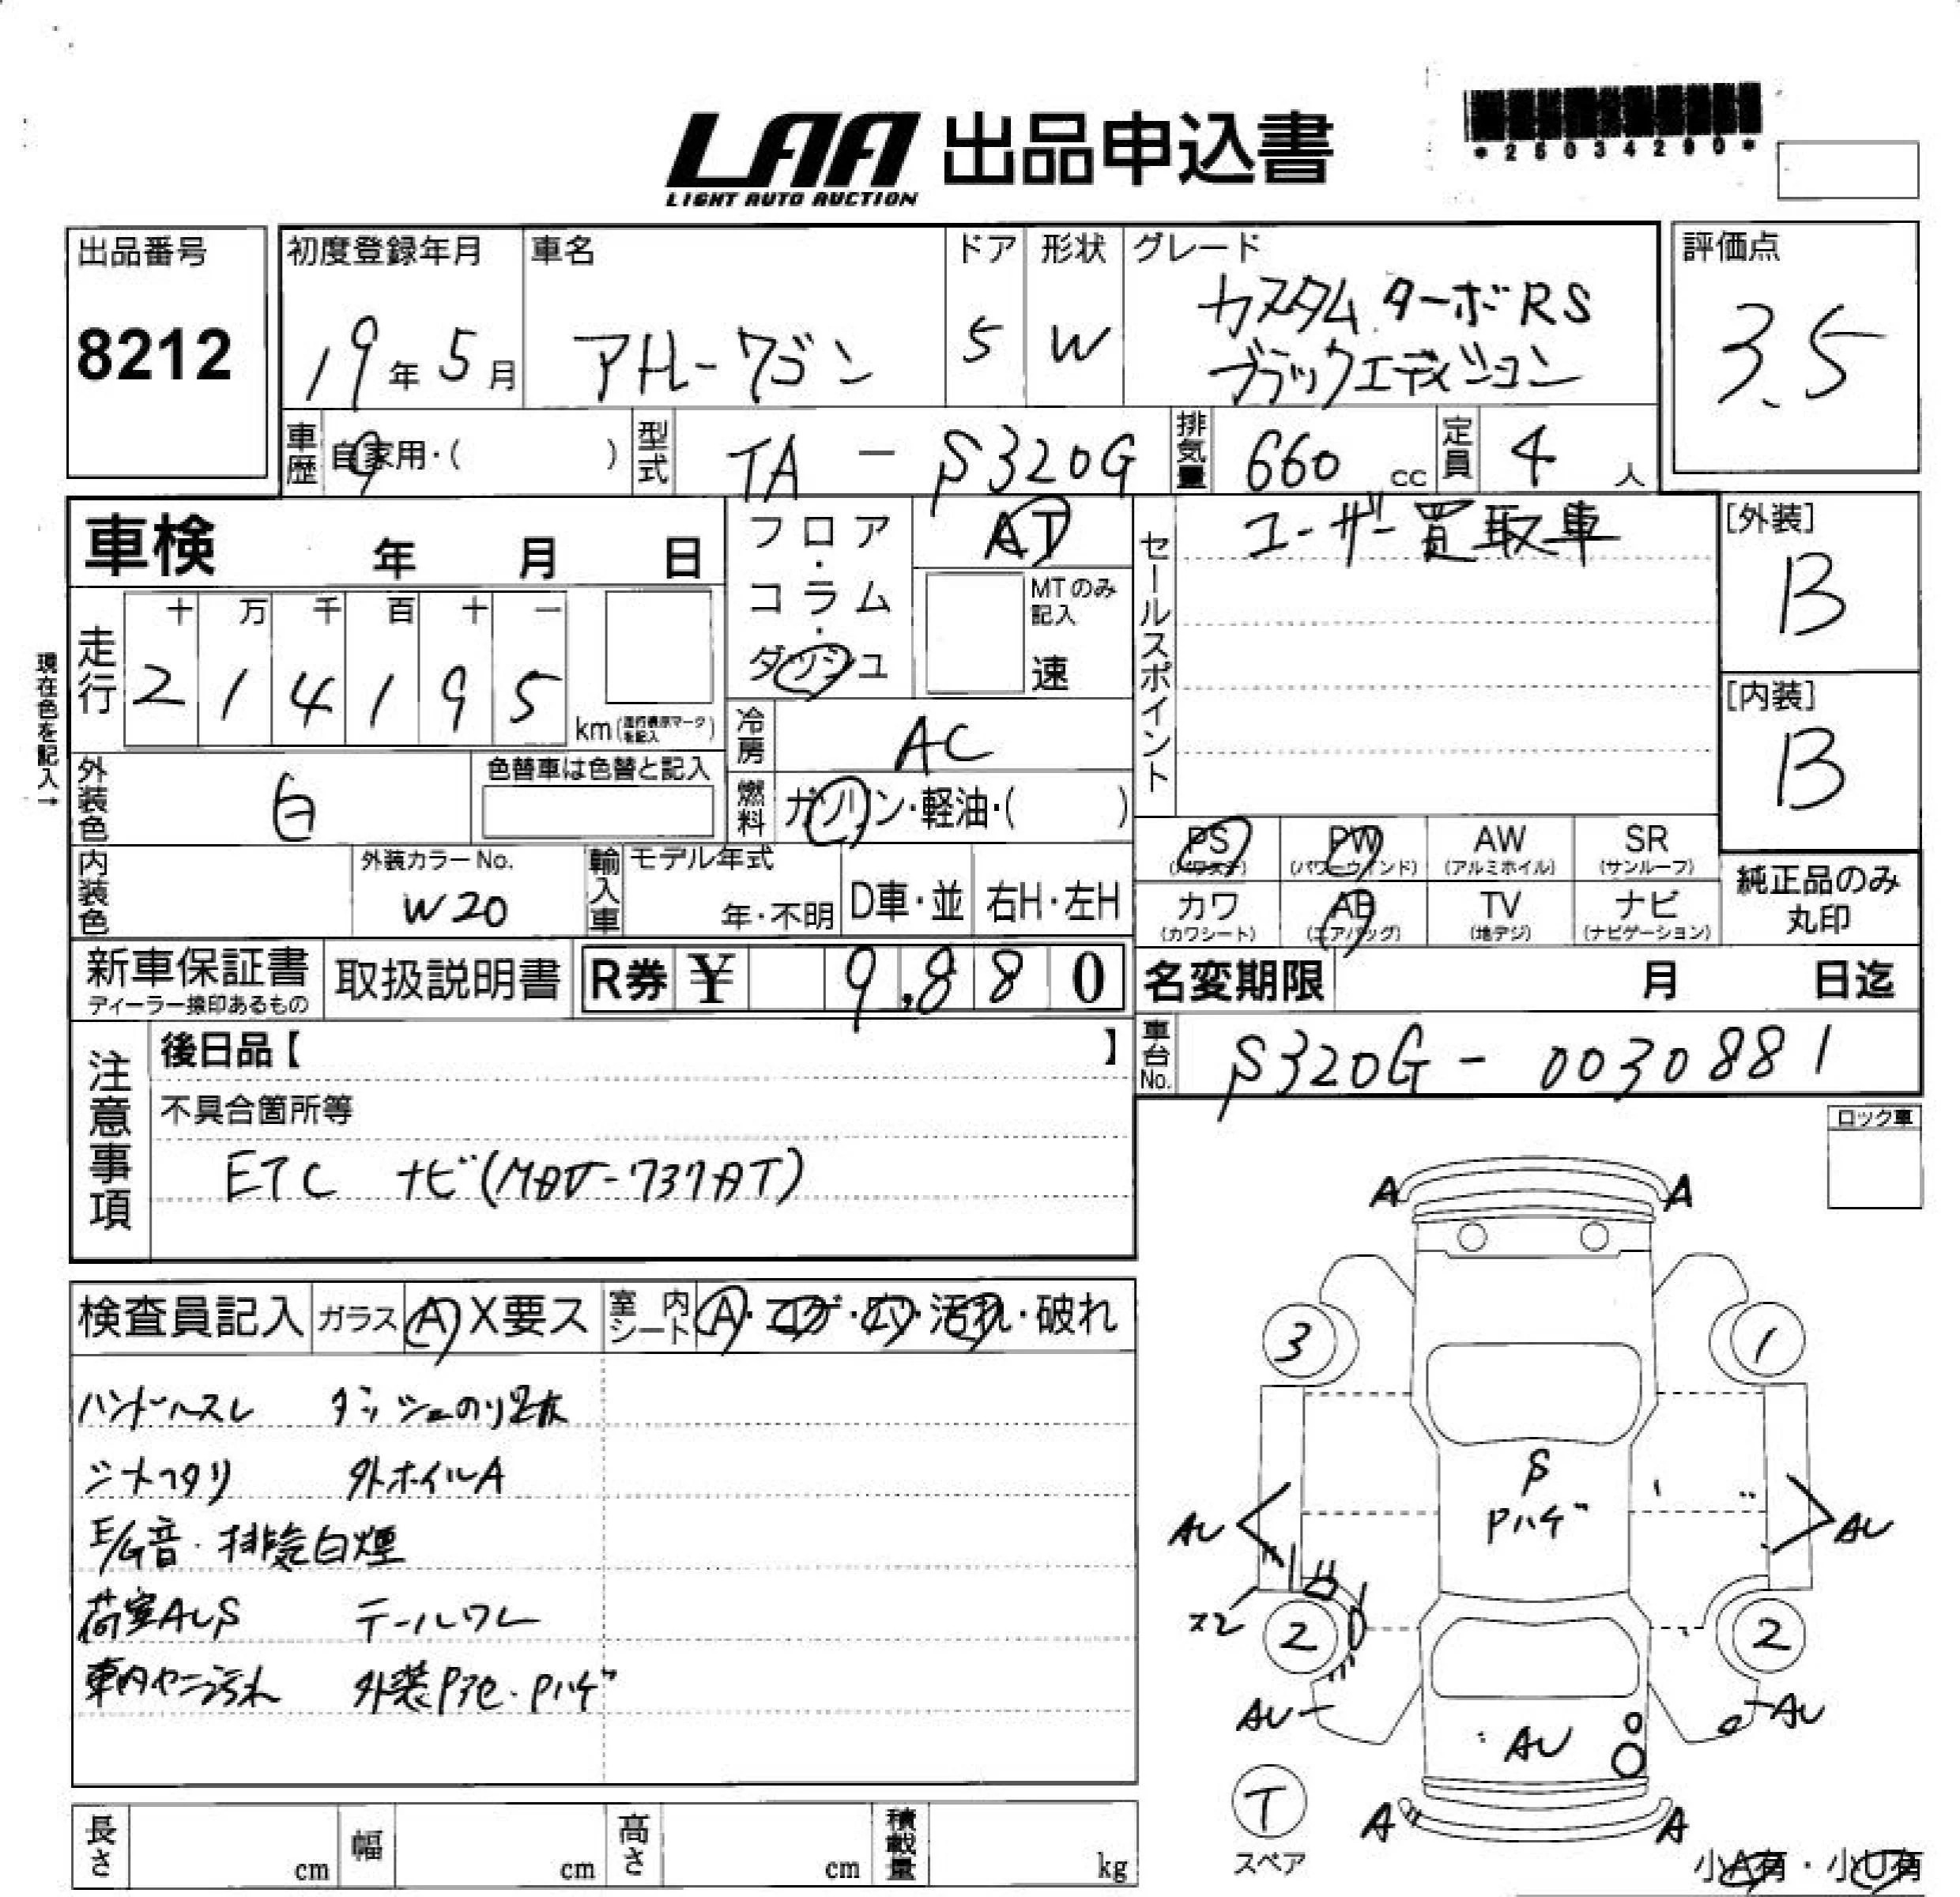 LAA 出品申込書
LIGHT AUTO AUCTION
*25034290*
出品番号
8212
初度登録年月
19年5月
車名
アトレーワゴン
ドア
5
形状
W
グレード
カスタム ターボRS
ブラックエディション
評価点
3.5
車歴 自家用・( )
型式 TA - S320G
排気量 660 cc
定員 4 人
車検 年 月 日
フロア・コラム・ダッシュ
AT
MTのみ記入
速
セールスポイント
ユーザー買取車
[外装]
B
[内装]
B
現在色を記入→
走行
十 万 千 百 十 一
2 1 4 1 9 5
km(走行表示マークを記入)
冷房 AC
外装色 白
色替車は色替と記入
燃料 ガソリン・軽油・( )
PS (パワステ)
PW (パワーウィンド)
AW (アルミホイル)
SR (サンルーフ)
カワ (カワシート)
AB (エアバッグ)
TV (地デジ)
ナビ (ナビゲーション)
純正品のみ
丸印
内装色
外装カラーNo.
W20
輸入車
モデル年式
年・不明
D車・並
右H・左H
新車保証書
ディーラー捺印あるもの
取扱説明書
R券 ¥ 9,880
名変期限 月 日迄
車台No. S320G - 0030881
注意事項
後日品【 】
不具合箇所等
ETC ナビ(
ロック車
検査員記入
ガラス A X要ス
室内シート A・コゲ・穴・汚れ・破れ
ハンドルスレ ダッシュのり
外ホイルA
E/G音・排気白煙
荷室AUS テールワレ
車内ヤニ汚れ 外装Pアセ・Pハゲ
A A
3 1
S
Pハゲ
AU AU
X2 2 2
AU AU
AU
T
スペア
A A
小A有・小U有
長さ cm
幅 cm
高さ cm
積載量 kg